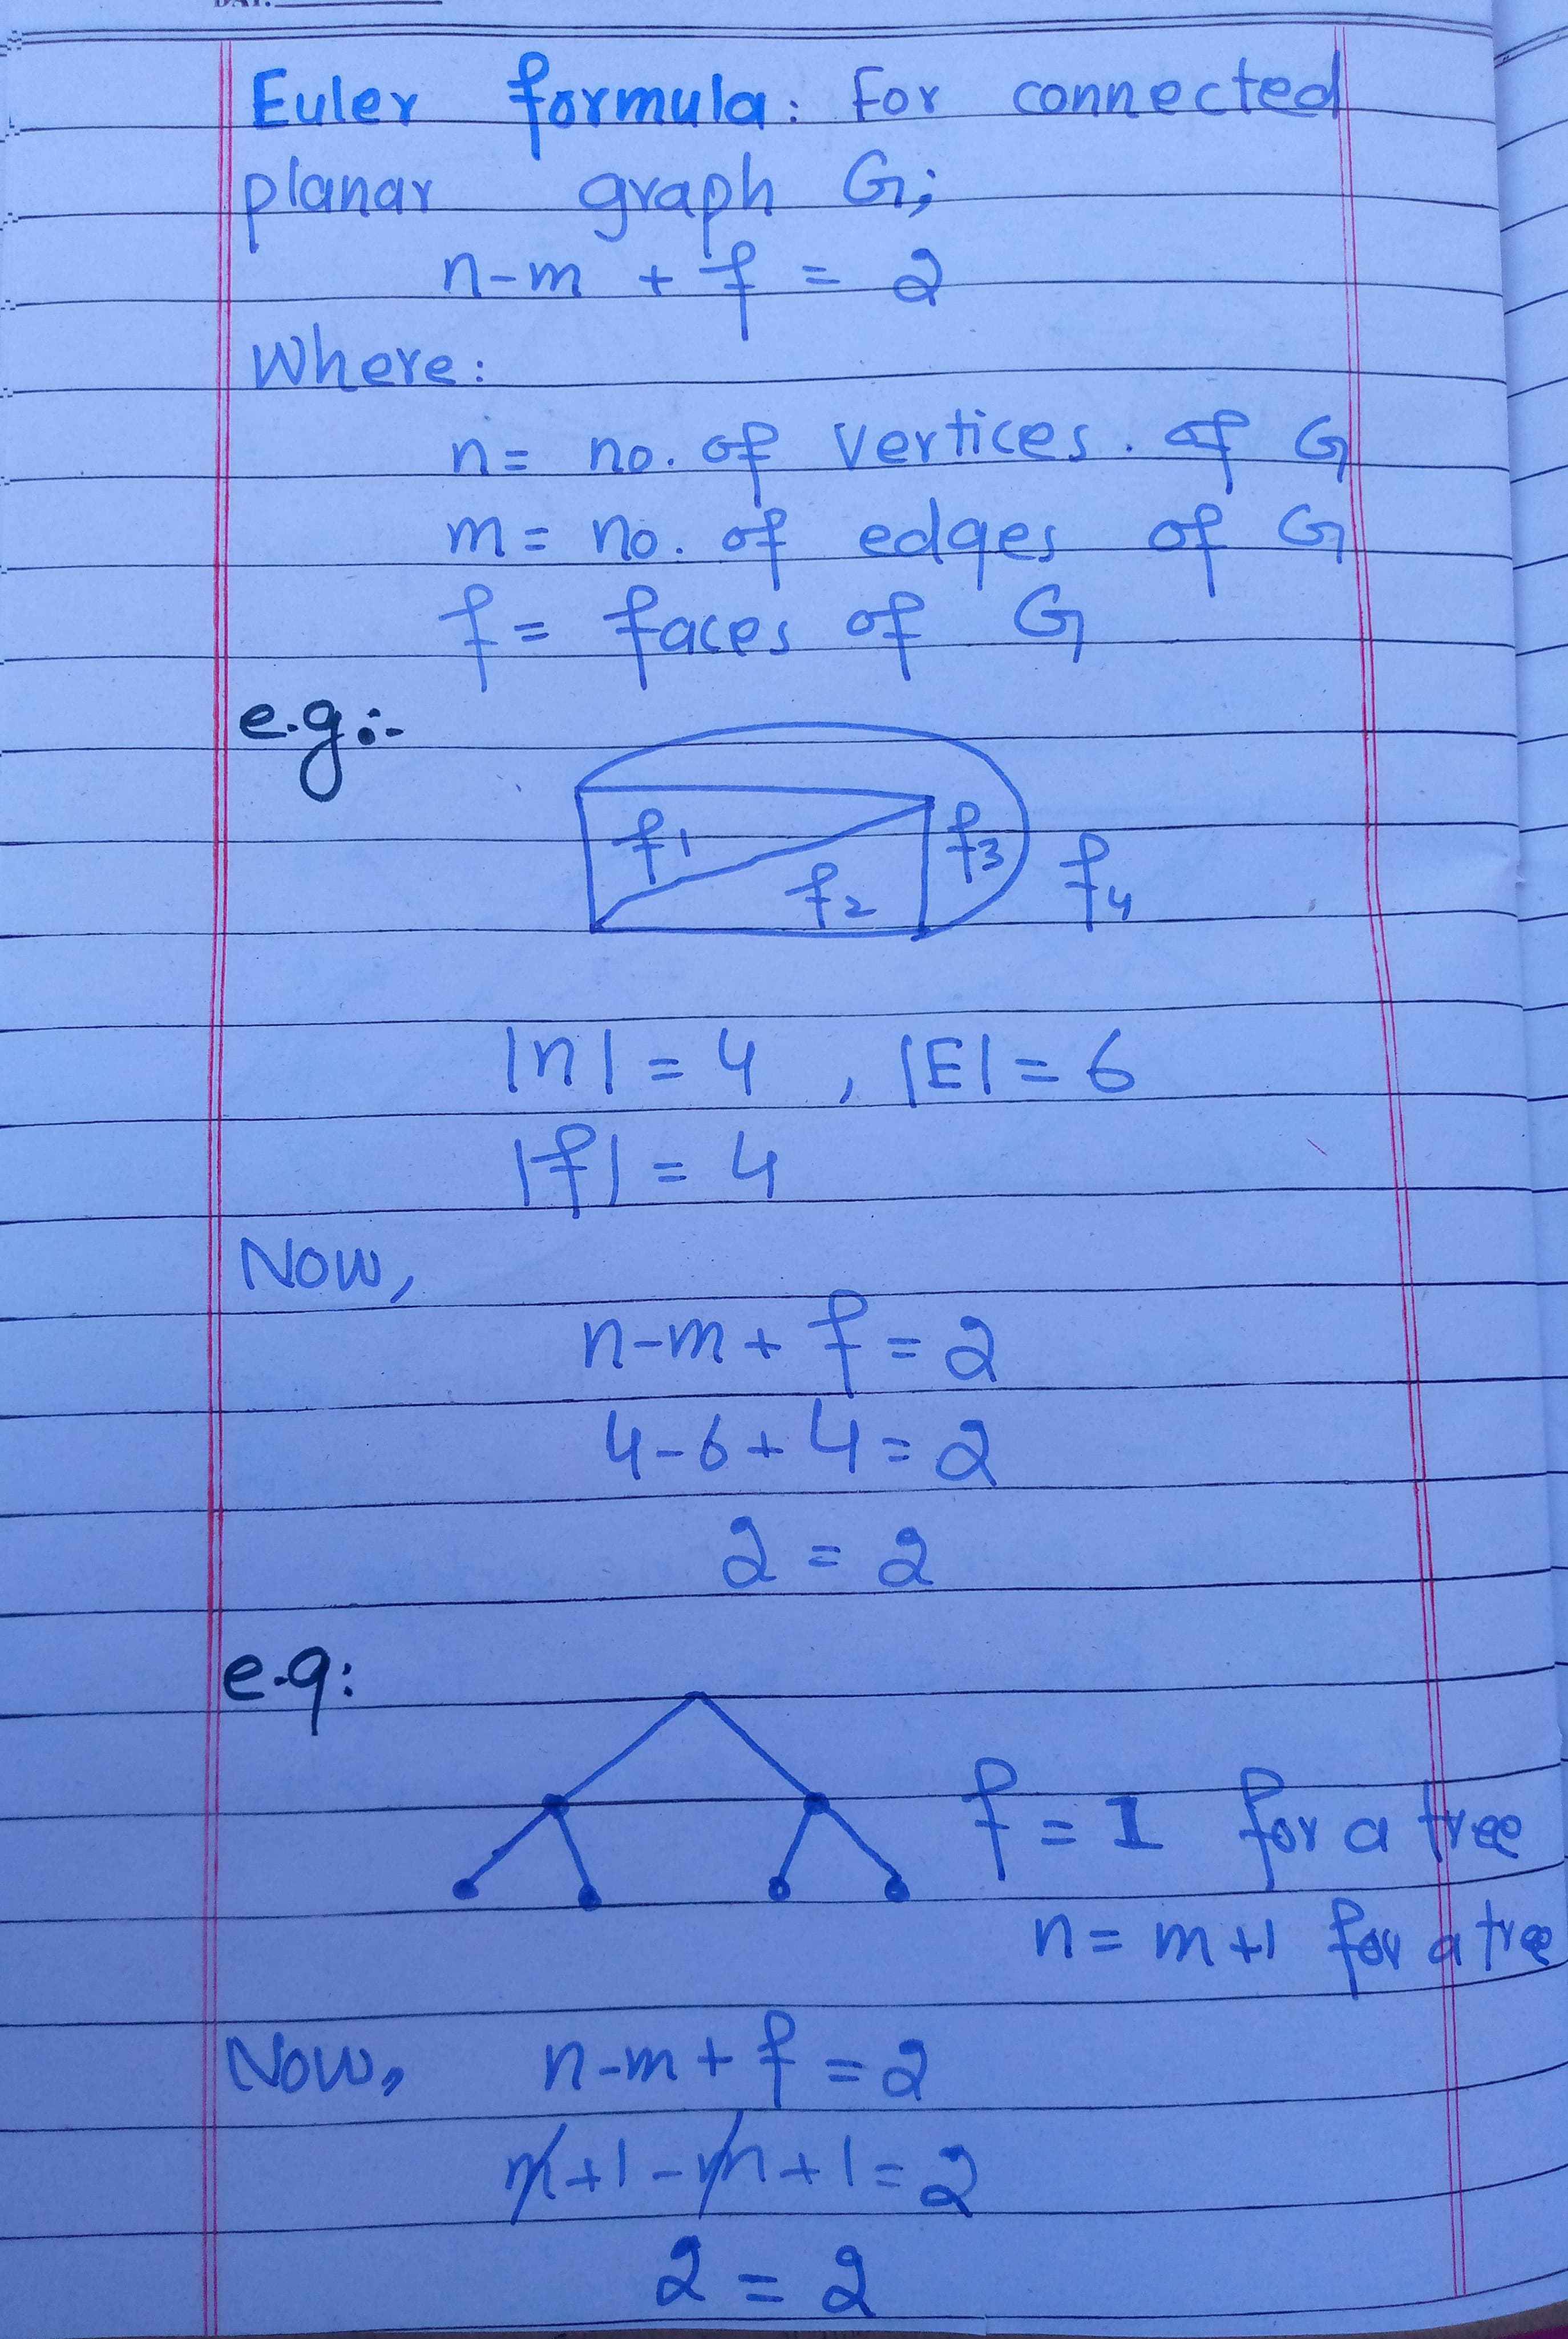 DAT:
Euler formula: For connected
planar graph G;
n-m + f = 2
Where:
n= no. of vertices. of G
m= no. of edges of G
f= faces of G
e.g:-
f1 f2 f3 f4
|n| = 4 , |E| = 6
|f| = 4
Now,
n-m + f = 2
4-6+4=2
2 = 2
e.g:
f = 1 for a tree
n= m+1 for a tree
Now, n-m+f=2
m+1-m+1=2
2 = 2